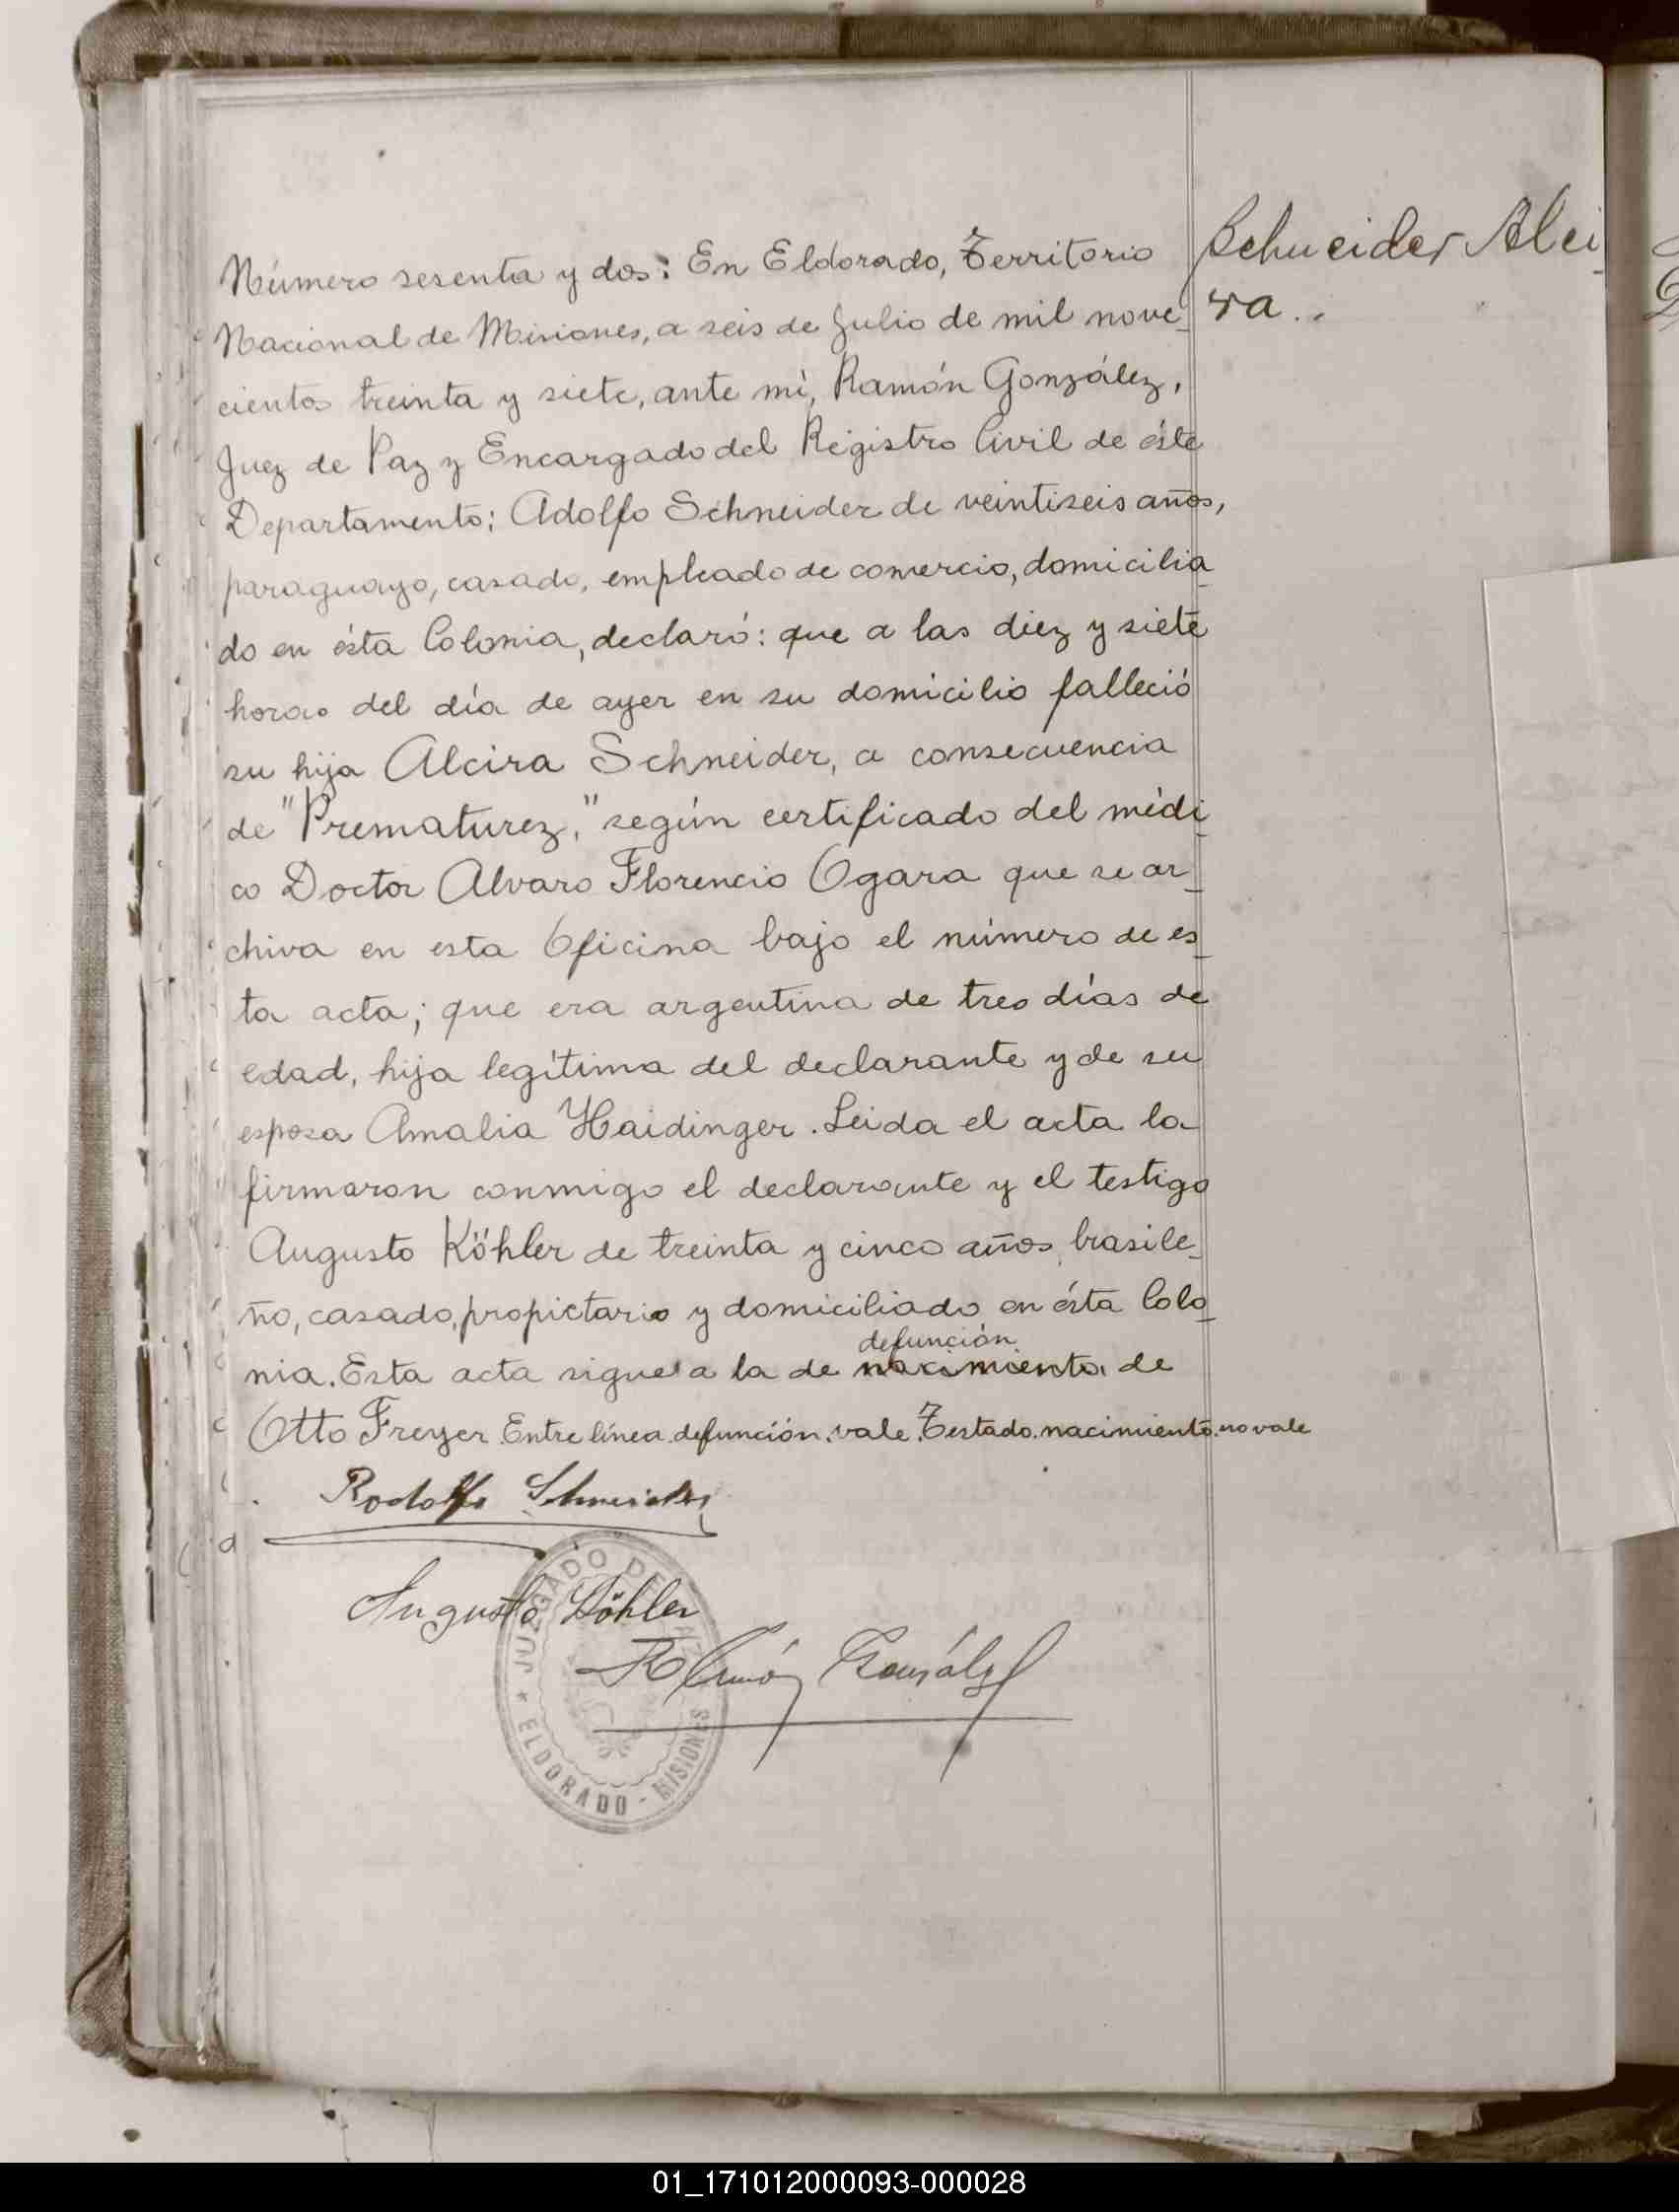 Número sesenta y dos: En Eldorado, Territorio
Nacional de Misiones, a seis de Julio de mil nove_
cientos treinta y siete, ante mí, Ramón González,
Juez de Paz y Encargado del Registro Civil de éste
Departamento: Adolfo Schneider de veintiseis años,
paraguayo, casado, empleado de comercio, domicilia_
do en ésta Colonia, declaró: que a las diez y siete
horas del día de ayer en su domicilio falleció
su hija Alcira Schneider, a consecuencia
de "Prematurez," según certificado del médi_
co Doctor Alvaro Florencio Ogara que se ar_
chiva en esta Oficina bajo el número de es_
ta acta; que era argentina de tres días de
edad, hija legítima del declarante y de su
esposa Amalia Haidinger. Leida el acta la
firmaron conmigo el declarante y el testigo
Augusto Köhler de treinta y cinco años, brasile_
ño, casado, propietario y domiciliado en ésta Colo_
defunción
nia. Esta acta sigue a la de nacimiento de
Otto Freyer. Entre línea. defunción. vale. Testado. nacimiento. no vale
Rodolfo Schneider
Augusto Köhler
Ramón González
JUZGADO DE PAZ
* ELDORADO - MISIONES
Schneider Alci_
ra..
01_171012000093-000028